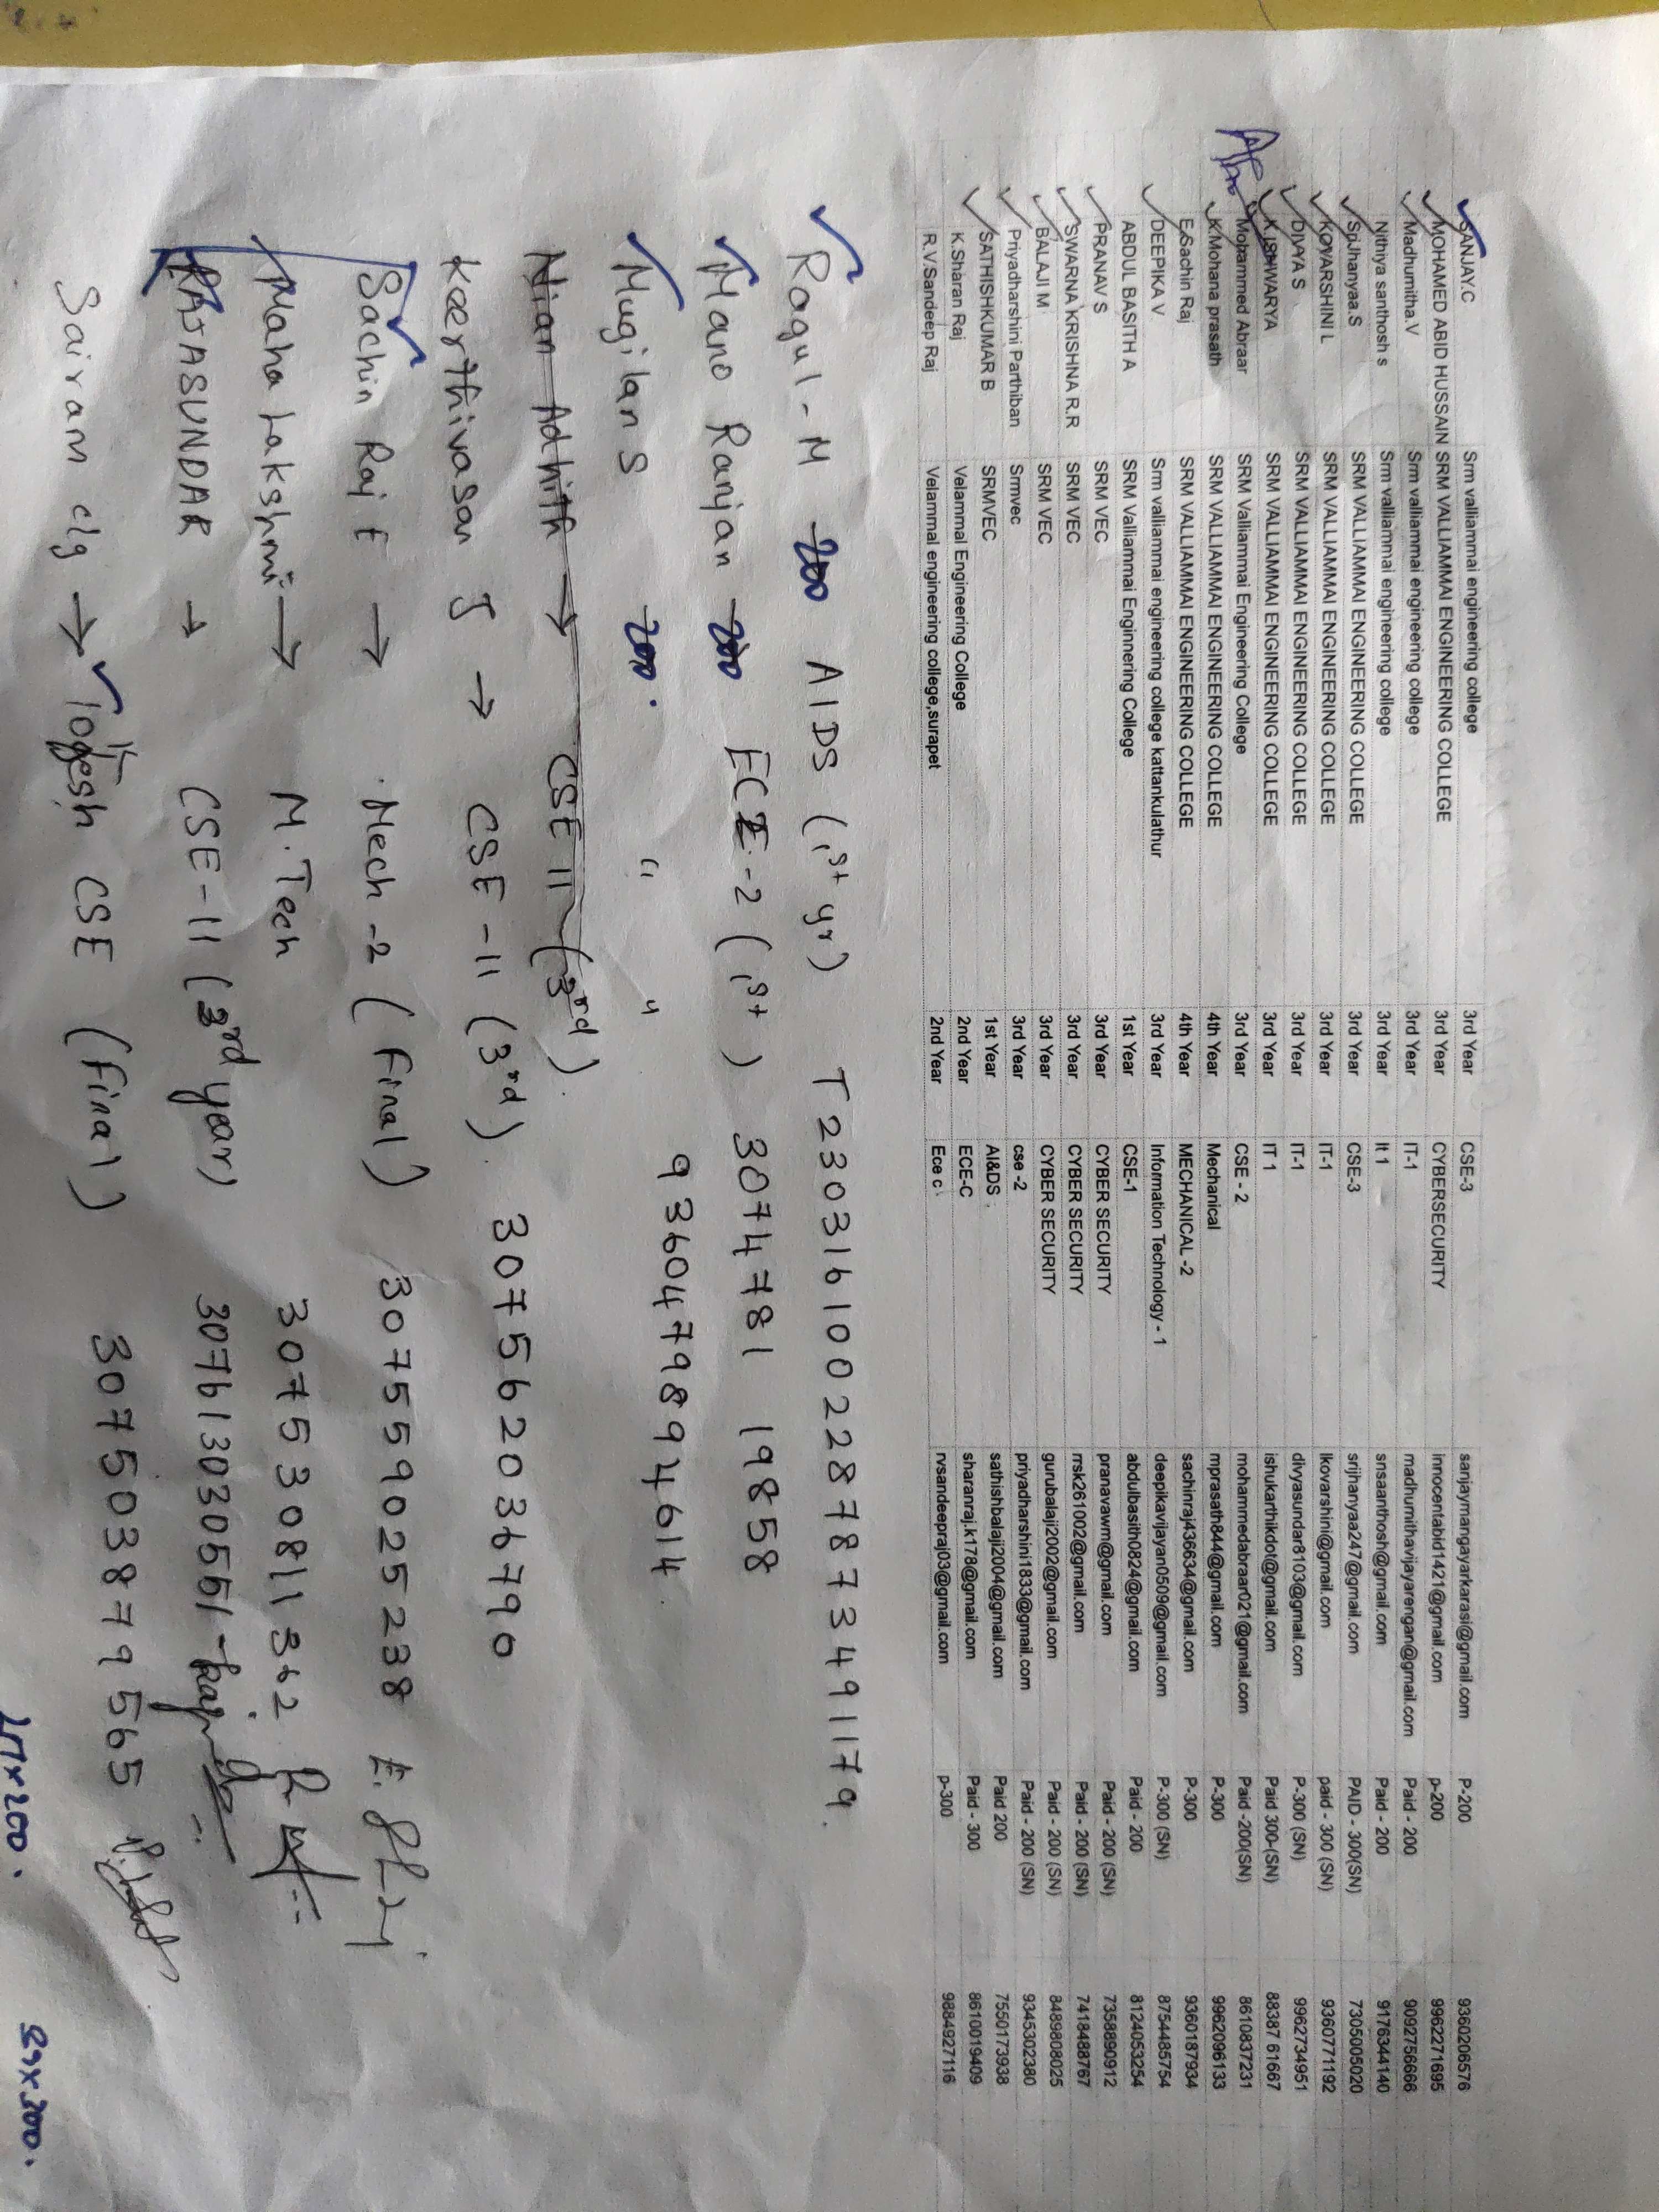 SANJAY.C Srm valliammai engineering college 3rd Year CSE-3 sanjaymangayarkarasi@gmail.com P-200 9360206576
MOHAMED ABID HUSSAIN SRM VALLIAMMAI ENGINEERING COLLEGE 3rd Year CYBERSECURITY innocentabid1421@gmail.com p-200 9962271695
Madhumitha.V Srm valliammai engineering college 3rd Year IT-1 madhumithavijayarengan@gmail.com Paid - 200 9092756666
Nithiya santhosh s Srm valliammai engineering college 3rd Year It 1 snsaanthosh@gmail.com Paid - 200 9176344140
Srijhanyaa.S SRM VALLIAMMAI ENGINEERING COLLEGE 3rd Year CSE-3 srijhanyaa247@gmail.com PAID - 300(SN) 7305005020
KOVARSHINI L SRM VALLIAMMAI ENGINEERING COLLEGE 3rd Year IT-1 lkovarshini@gmail.com paid - 300 (SN) 9360771192
DIVYA S SRM VALLIAMMAI ENGINEERING COLLEGE 3rd Year IT-1 divyasundar8103@gmail.com P-300 (SN) 9962734951
K.ISHWARYA SRM VALLIAMMAI ENGINEERING COLLEGE 3rd Year IT 1 ishukarthikdot@gmail.com Paid 300-(SN) 88387 61667
Mohammed Abraar SRM Valliammai Engineering College 3rd Year CSE - 2 mohammedabraar021@gmail.com Paid -200(SN) 8610837231
K.Mohana prasath SRM VALLIAMMAI ENGINEERING COLLEGE 4th Year Mechanical mprasath844@gmail.com P-300 9962096133
E.Sachin Raj SRM VALLIAMMAI ENGINEERING COLLEGE 4th Year MECHANICAL -2 sachinraj436634@gmail.com P-300 9360187934
DEEPIKA V Srm valliammai engineering college kattankulathur 3rd Year Information Technology - 1 deepikavijayan0509@gmail.com P-300 (SN) 8754485754
ABDUL BASITH A SRM Valliammai Enginnering College 1st Year CSE-1 abdulbasith0824@gmail.com Paid - 200 8124053254
PRANAV S SRM VEC 3rd Year CYBER SECURITY pranavawm@gmail.com Paid - 200 (SN) 7358890912
SWARNA KRISHNA R.R SRM VEC 3rd Year CYBER SECURITY rrsk261002@gmail.com Paid - 200 (SN) 7418488767
BALAJI M SRM VEC 3rd Year CYBER SECURITY gurubalaji2002@gmail.com Paid - 200 (SN) 8489808025
Priyadharshini Parthiban Srmvec 3rd Year cse -2 priyadharshini1833@gmail.com Paid - 200 (SN) 9345302380
SATHISHKUMAR B SRMVEC 1st Year AI&DS sathishbalaji2004@gmail.com Paid 200 7550173938
K.Sharan Raj Velammal Engineering College 2nd Year ECE-C sharanraj.k178@gmail.com Paid - 300 8610019409
R.V.Sandeep Raj Velammal engineering college,surapet 2nd Year Ece c rvsandeepraj03@gmail.com p-300 9884927116
Ragul-M 200 AIDS (1st yr) T2303161002287873491179.
Mano Ranjan 200 ECE-2 (1st) 307478119858
Mugilan S 200. " " 9360479894614
Nian Adhith → CSE 11 (3rd).
Keerthivasan J → CSE -11 (3rd). 307562036790
Sachin Raj E → Mech -2 (final) 307559025238
Maha Lakshmi → M.Tech 307530811362
RAJASUNDAR → CSE-11 (3rd year) 307613030551
Sairam clg → Yogesh CSE (final) 307503879565
17x200.
89x300.